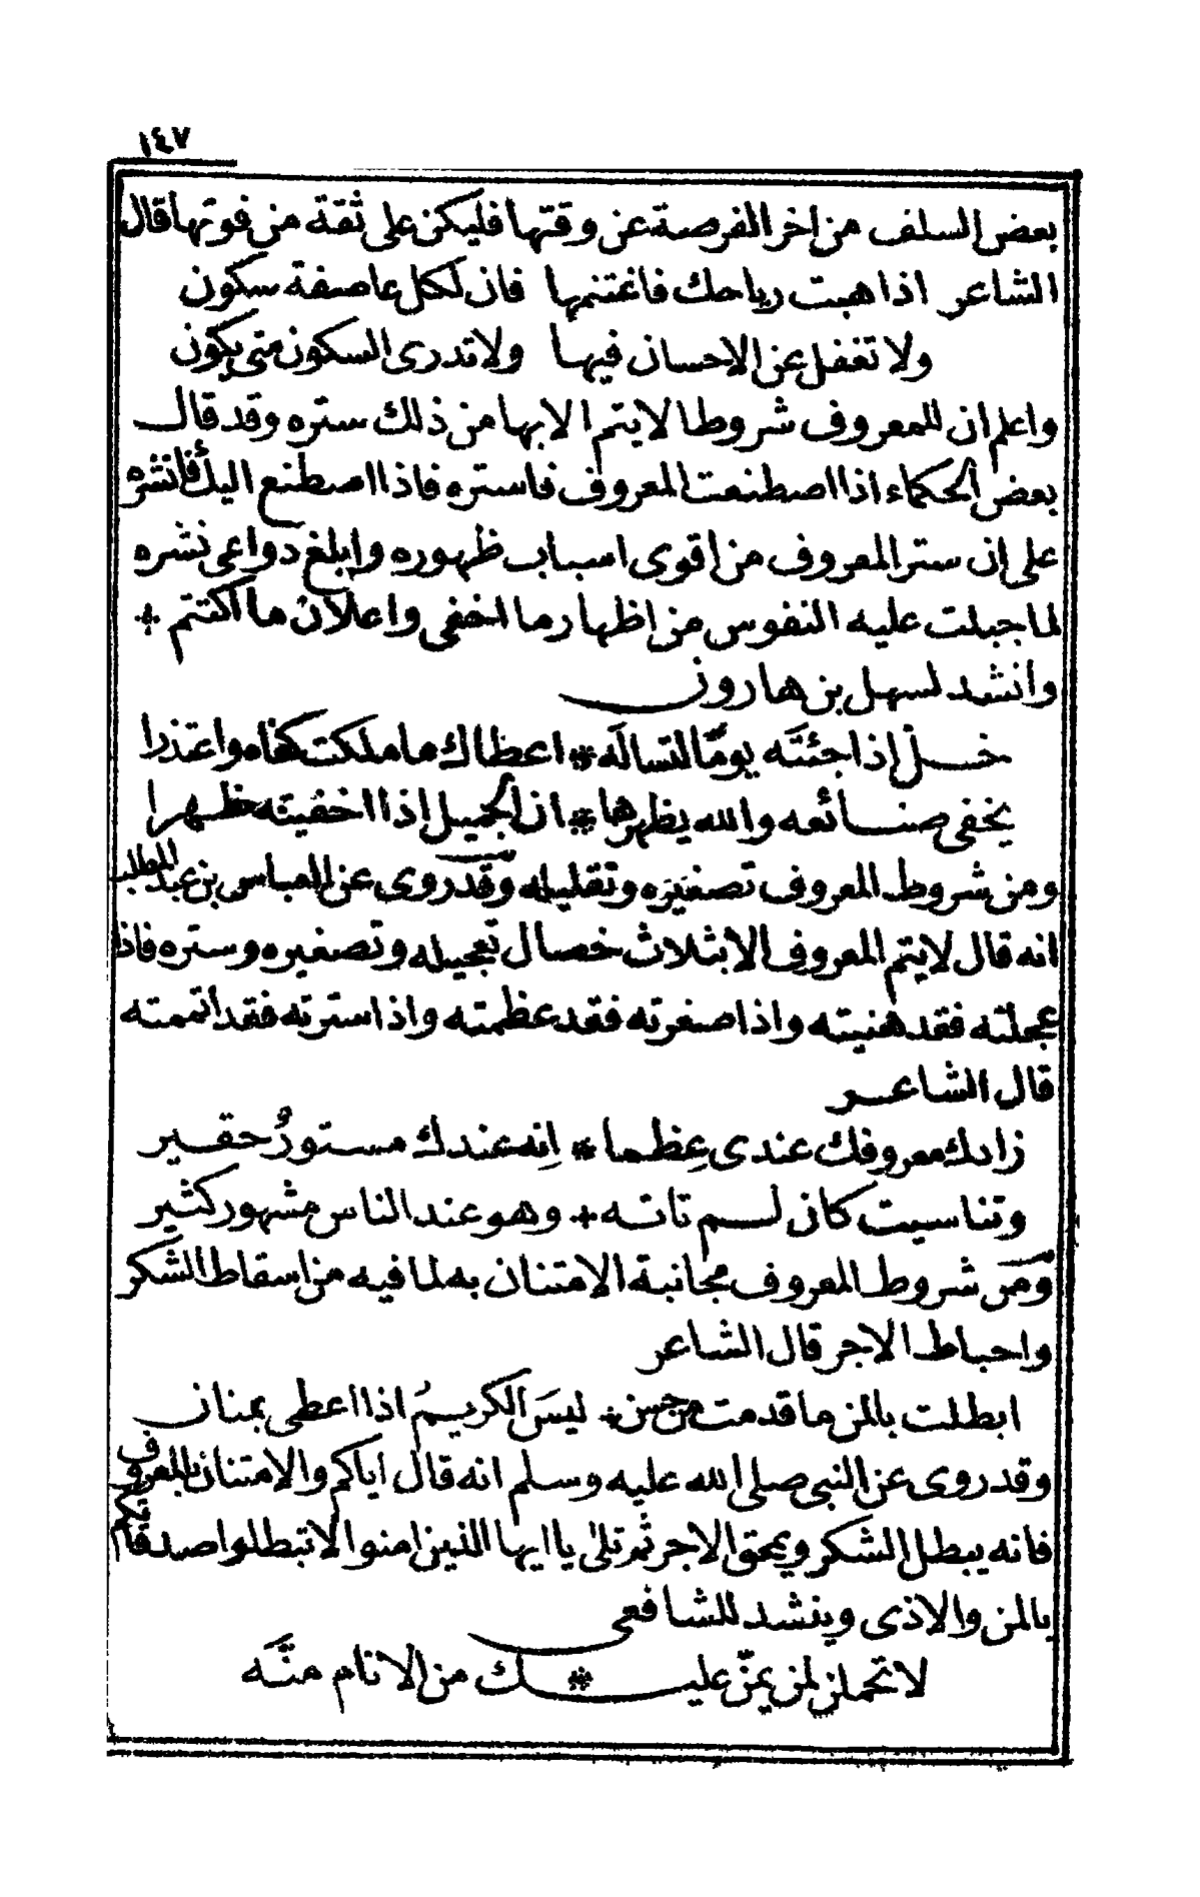 ١٤٧
بعض السلف من اخر الفرصة عن وقتها فليكن على ثقة من فوتها قال
الشاعر اذا هبت رياحك فاغتنمها فان لكل عاصفة سكون
ولا تغفل عن الاحسان فيها ولا تدرى السكون متى يكون
واعلم ان للمعروف شروطا لا يتم الا بها من ذلك ستره وقد قال
بعض الحكماء اذا اصطنعت المعروف فاستره فاذا اصطنع اليك فانشره
على ان ستر المعروف من اقوى اسباب ظهوره وابلغ دواعى نشره
لما جبلت عليه النفوس من اظهار ما اخفى واعلان ما اكتتم *
وانشد لسهل بن هارون
خل إذا جئتَه يومًا لتسالَه * اعطاك ما ملكت كفاه واعتذرا
يخفى صنائعه والله يظهرها * ان الجميل إذا اخفيته ظهرا
ومن شروط المعروف تصغيره وتقليله وقد روى عن العباس بن عبد المطلب
انه قال لا يتم المعروف الا بثلاث خصال تعجيله وتصغيره وستره فاذا
عجلته فقد هنيته واذا صغرته فقد عظمته واذا سترته فقد أتممته
قال الشاعر
زادك معروفك عندى عِظما * اِنه عندك مستورٌ حقير
وتناسيت كان لم تاته * وهو عند الناس مشهور كثير
ومن شروط المعروف مجانبة الامتنان به لما فيه من اسقاط الشكر
واحباط الاجر قال الشاعر
ابطلت بالمن ما قدمت من حسن * ليسَ الكريمُ اذا اعطى بمنان
وقد روى عن النبى صلى الله عليه وسلم انه قال اياكم والامتنان بالمعروف
فانه يبطل الشكر ويمحق الاجر ثم تلى يا ايها الذين امنوا لا تبطلوا صدقاتكم
بالمن والاذى وينشد للشافعى
لا تحملن لمن يمنّ عليك * من الانام منَّه